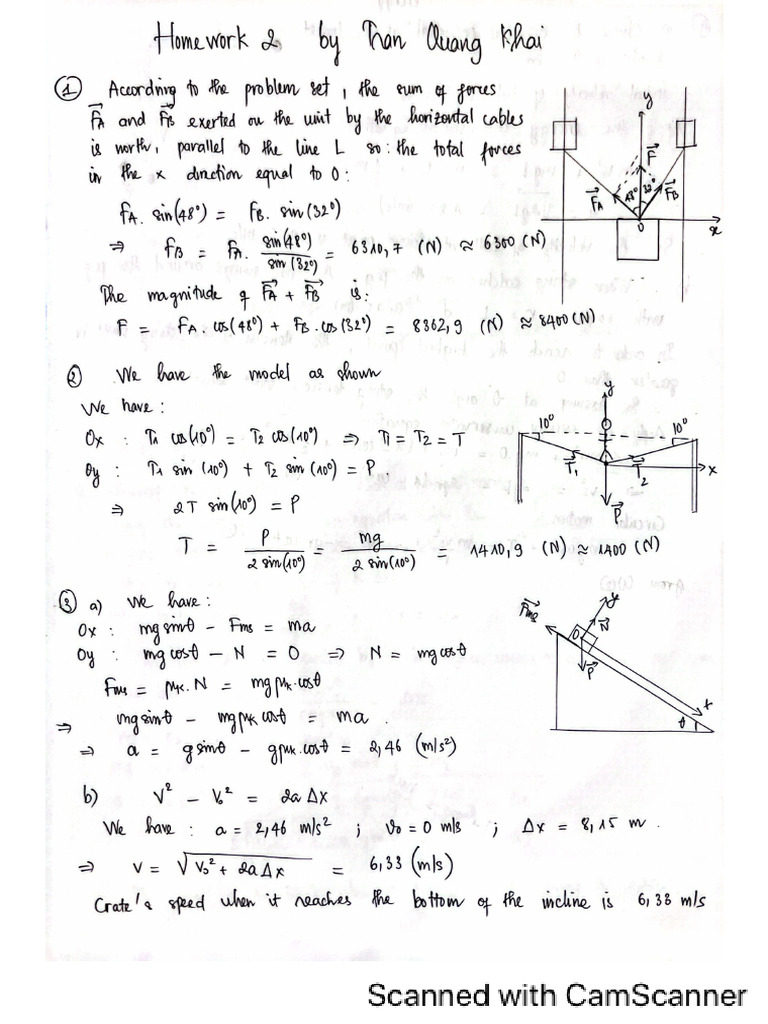 Homework 2 by Tran Quang Khai
① According to the problem set, the sum of forces
F⃗A and F⃗B exerted on the unit by the horizontal cables
is worth, parallel to the line L so: the total forces
in the x direction equal to 0:
FA. sin(48°) = FB. sin(32°)
⇒ FB = FA. sin(48°)/sin(32°) = 6310,7 (N) ≈ 6300 (N)
The magnitude of F⃗A + F⃗B is:
F = FA.cos(48°) + FB.cos(32°) = 8362,9 (N) ≈ 8400 (N)
y
F⃗
F⃗A 48° 32° F⃗B
O x
② We have the model as shown
We have:
Ox : T1 cos(10°) = T2 cos(10°) ⇒ T1 = T2 = T
Oy : T1 sin(10°) + T2 sin(10°) = P.
⇒ 2T sin(10°) = P
T = P/2 sin(10°) = mg/2 sin(10°) = 1410,9 (N) ≈ 1400 (N)
y
10° 10°
T⃗1 T⃗2 x
P⃗
③ a) We have:
Ox : mg sinθ - Fms = ma
Oy : mg cosθ - N = 0 ⇒ N = mg cosθ
Fms = μk.N = mgμk.cosθ
⇒ mg sinθ - mgμk cosθ = ma.
⇒ a = g sinθ - gμk.cosθ = 2,46 (m/s²)
F⃗ms y
O N⃗
P⃗
x
θ
b) V² - V0² = 2aΔx
We have : a = 2,46 m/s² ; V0 = 0 m/s ; Δx = 8,15 m.
⇒ V = √(V0² + 2aΔx) = 6,33 (m/s)
Crate's speed when it reaches the bottom of the incline is 6,33 m/s
Scanned with CamScanner